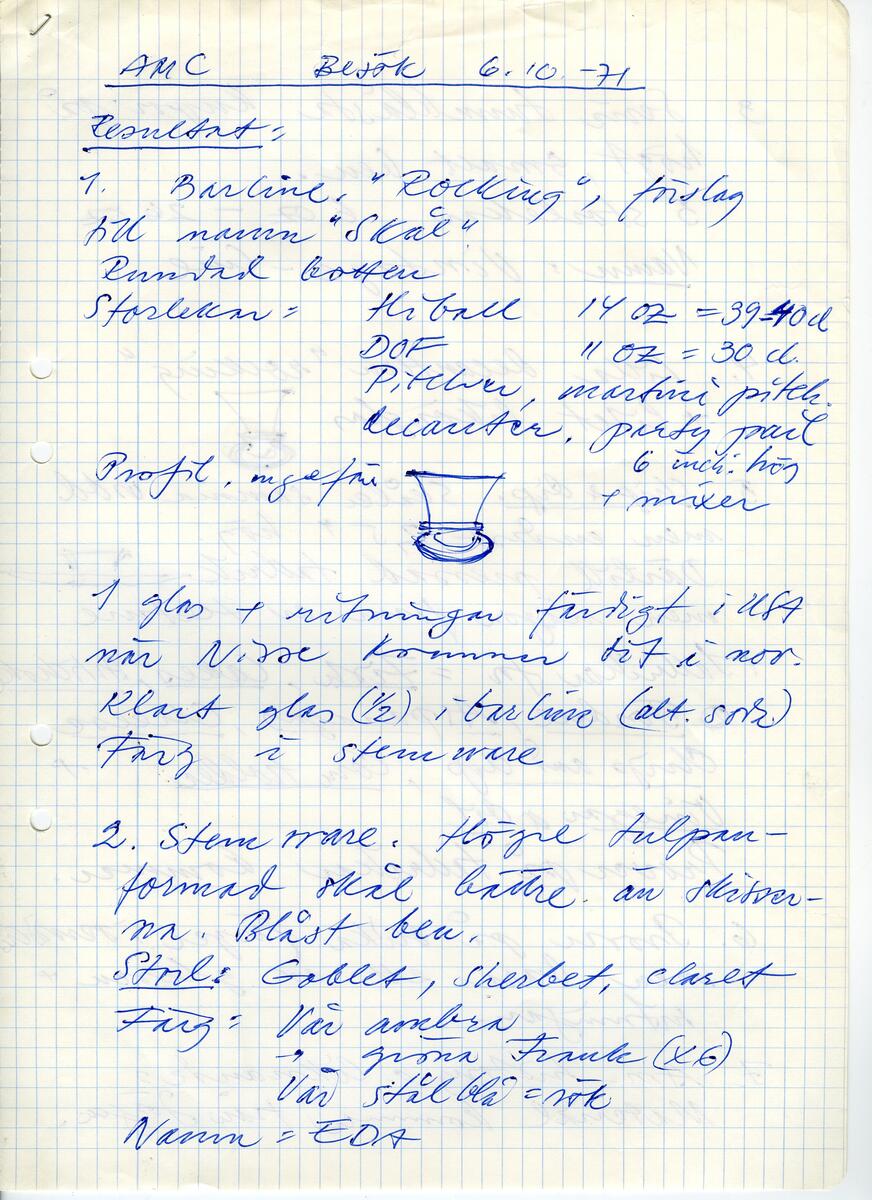 AMC Besök 6.10.-71
Resultat:
1. Barline. "Rocking", förslag
till namn "Skål"
Rundad botten
Storlekar = Hiball 14 oz = 39-40 cl
DOF 11 oz = 30 cl.
Pitcher, martini pitch.
decanter, party pail
6 inch. hög
Profil, ungefär
+ mixer
1 glas + ritningar färdigt i USA
när Nisse kommer dit i nov.
Klart glas (1/2) i barline (alt. soda)
Färg i stemware
2. Stemware. Högre tulpan-
formad skål bättre än skisser-
na. Blåst ben.
Storl: Goblet, Sherbet, claret
Färg = Vår ambra
-"- gröna Frank (X6)
Vår stålblå = rök
Namn = EDA